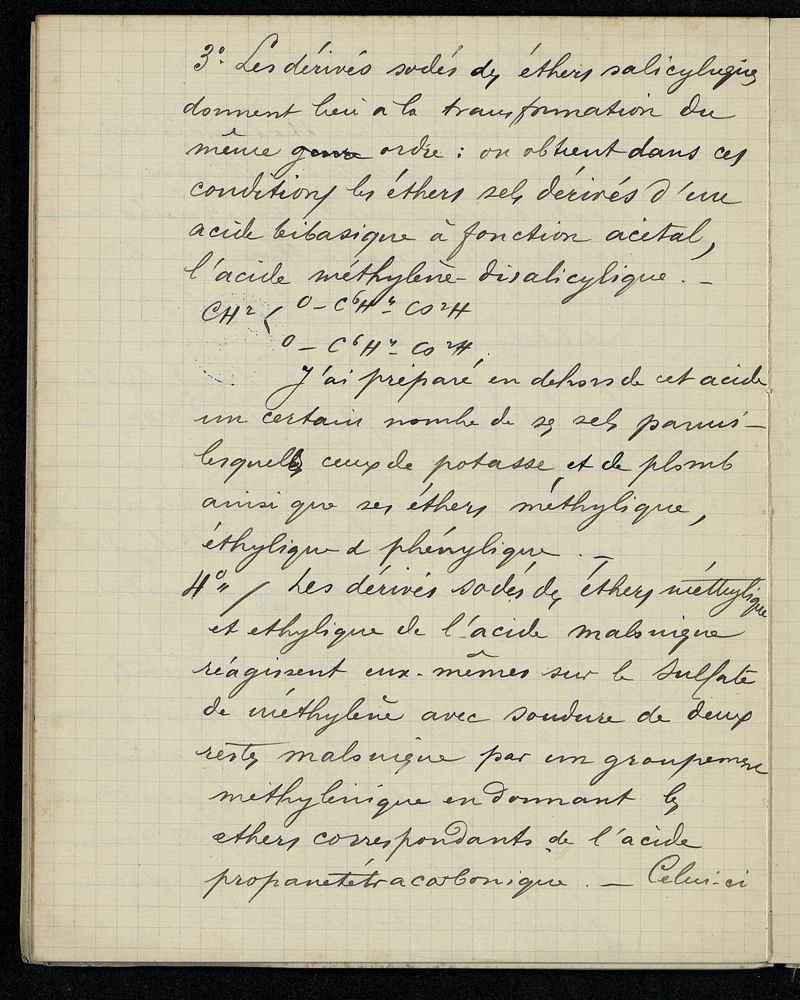 3°. Les dérivés sodés des éthers salicyliques
donnent lieu a la transformation du
même genre ordre : on obtient dans ces
conditions les éthers sels dérivés d'un
acide bibasique à fonction acétal,
l'acide méthylène-disalicylique. –
CH² < O – C⁶H⁴ - CO²H
O – C⁶H⁴ - CO²H.
J'ai préparé en dehors de cet acide
un certain nombre de ses sels parmi –
lesquels ceux de potasse et de plomb
ainsi que ses éthers méthylique,
éthylique et phénylique. –
4°" / Les dérivés sodés des éthers méthylique
et ethylique de l'acide malonique
réagissent eux-mêmes sur le sulfate
de méthylène avec soudure de deux
restes malonique par un groupement
méthylénique en donnant les
ethers correspondants de l'acide
propanetétracarbonique. – Celui-ci